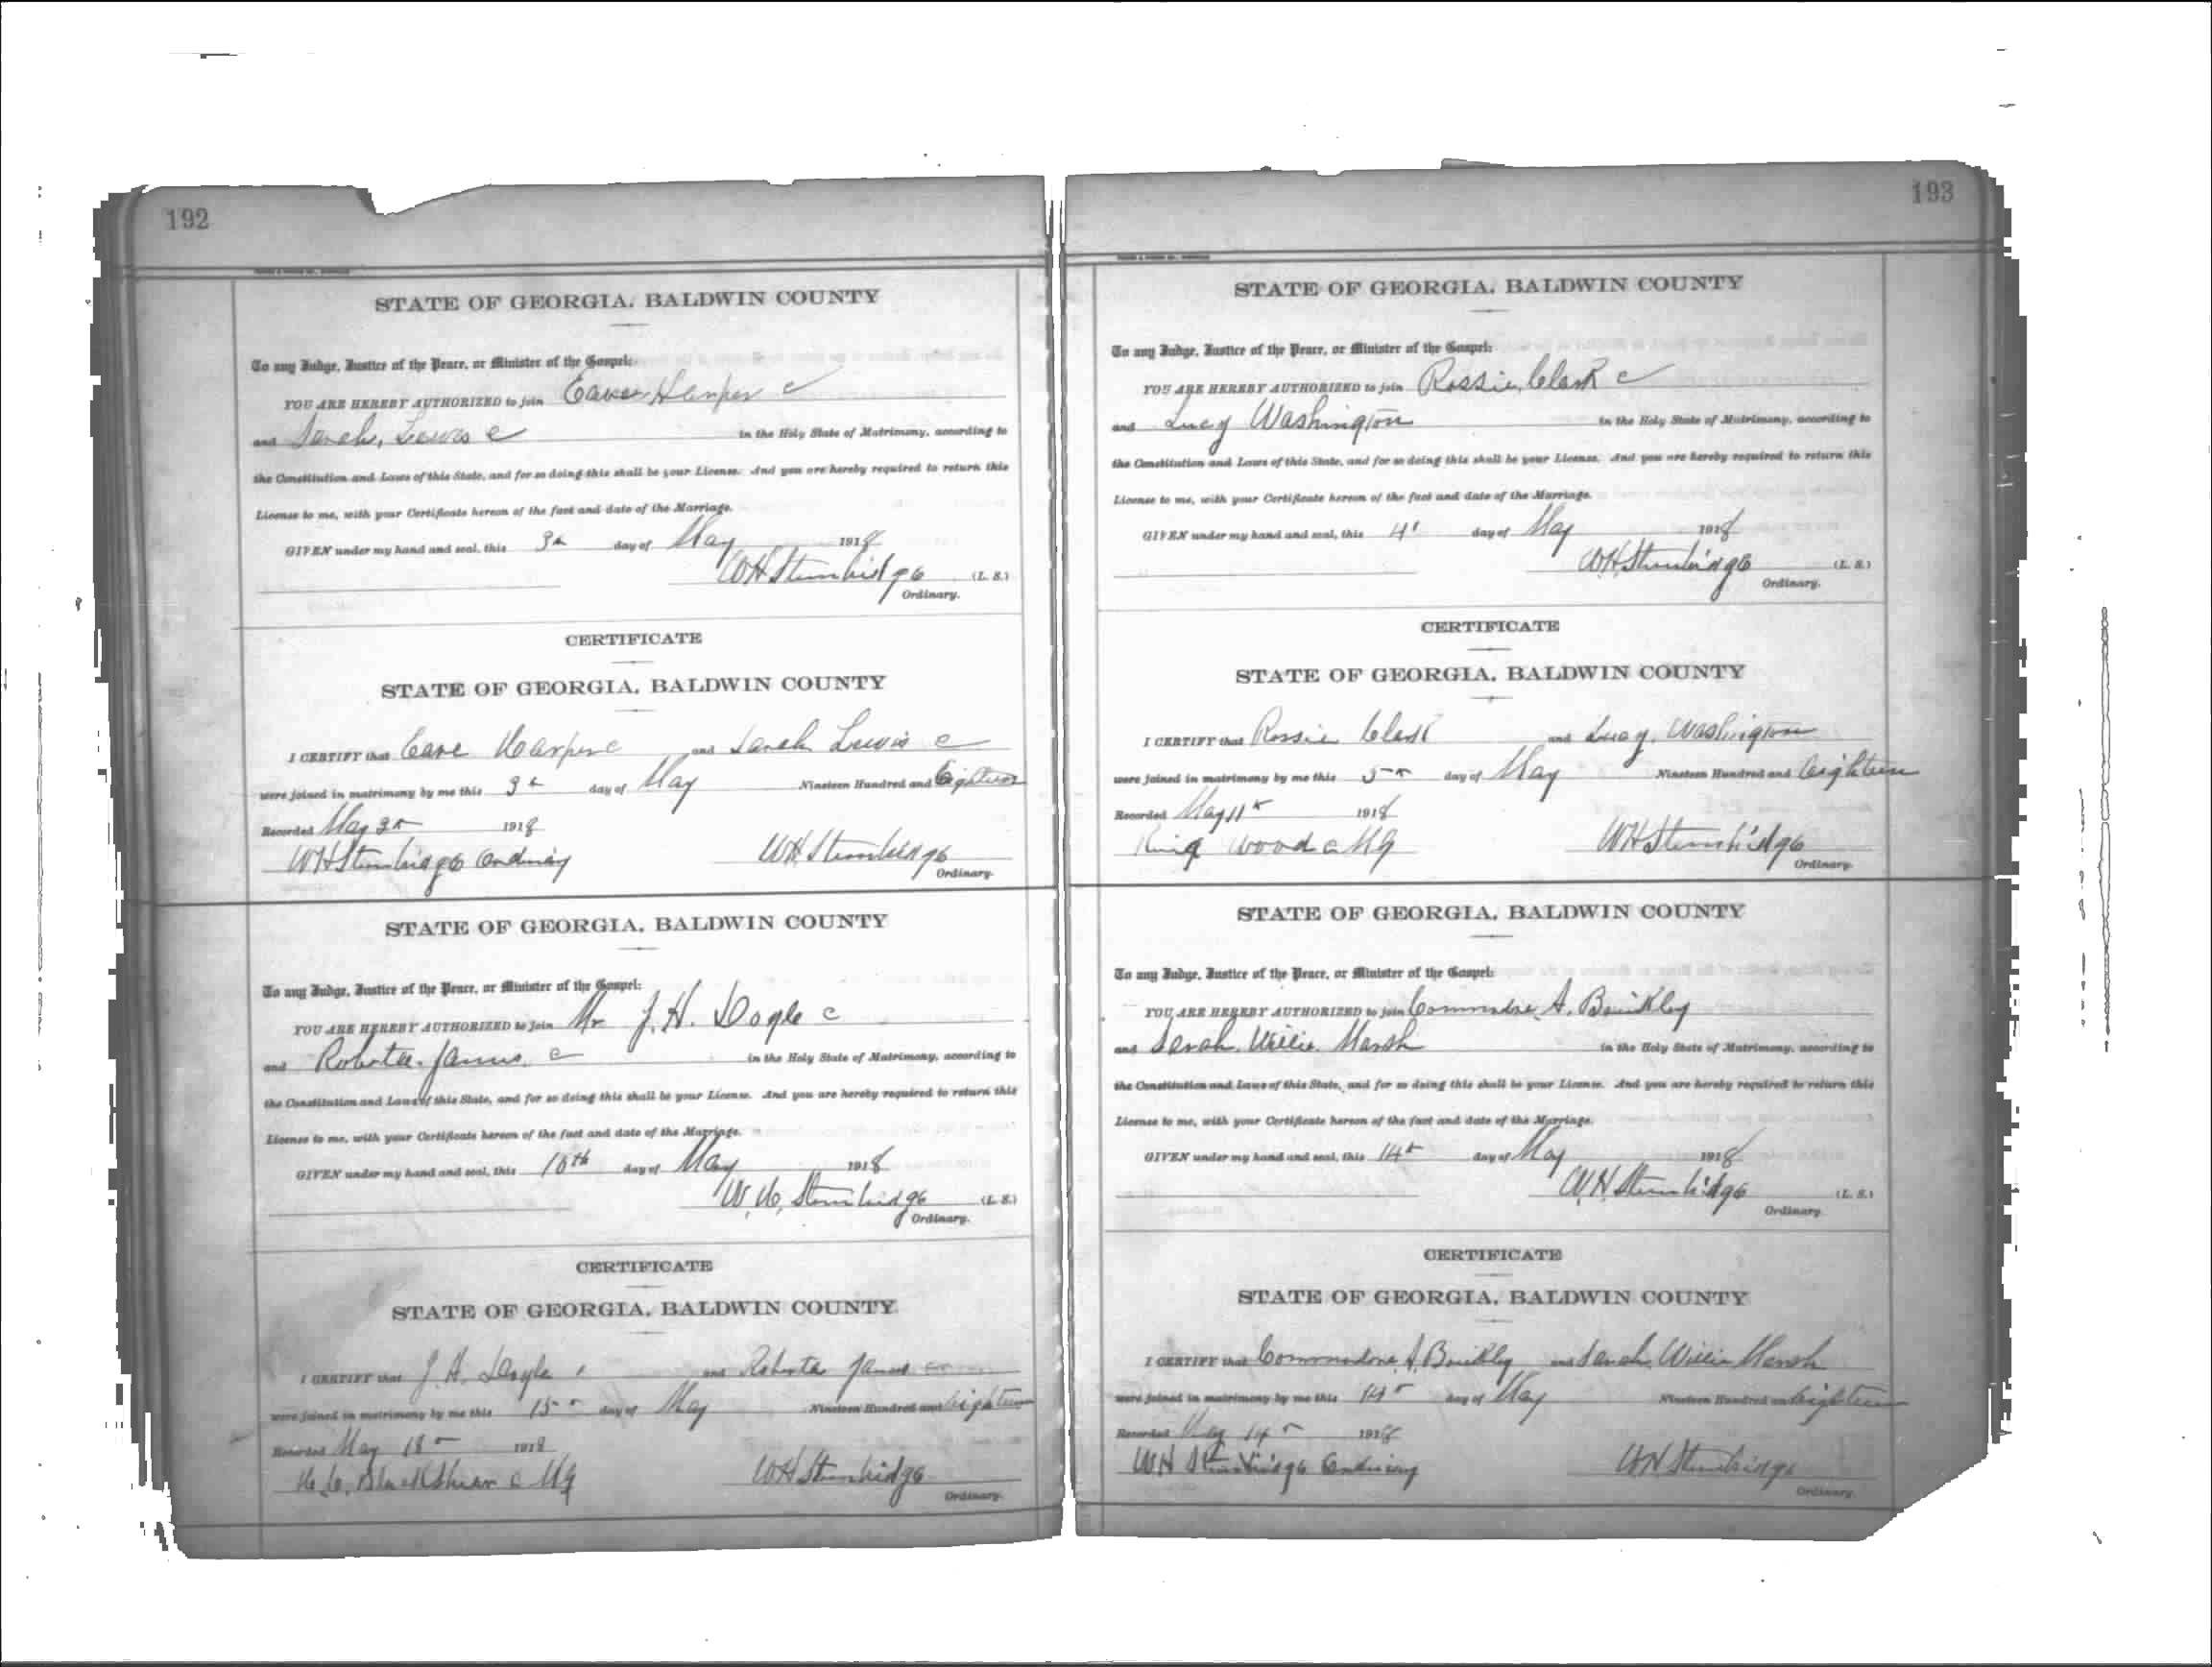 192
STATE OF GEORGIA, BALDWIN COUNTY
To any Judge, Justice of the Peace, or Minister of the Gospel:
YOU ARE HEREBY AUTHORIZED to join Harper c
and Sarah, Lewis c in the Holy State of Matrimony, according to
the Constitution and Laws of this State, and for so doing this shall be your License. And you are hereby required to return this
License to me, with your Certificate hereon of the fact and date of the Marriage.
GIVEN under my hand and seal, this 3 day of May 1918
WH Stembridge (L. S.)
Ordinary.
CERTIFICATE
STATE OF GEORGIA, BALDWIN COUNTY
I CERTIFY that Harper c and Sarah Lewis c
were joined in matrimony by me this 3 day of May Nineteen Hundred and Eighteen
Recorded May 3 1918
WH Stembridge Ordinary WH Stembridge
Ordinary.
STATE OF GEORGIA, BALDWIN COUNTY
To any Judge, Justice of the Peace, or Minister of the Gospel:
YOU ARE HEREBY AUTHORIZED to join Mr J. H. Dogle c
and Roberta James. c in the Holy State of Matrimony, according to
the Constitution and Laws of this State, and for so doing this shall be your License. And you are hereby required to return this
License to me, with your Certificate hereon of the fact and date of the Marriage.
GIVEN under my hand and seal, this 10th day of May 1918
W. H. Stembridge (L. S.)
Ordinary.
CERTIFICATE
STATE OF GEORGIA, BALDWIN COUNTY
I CERTIFY that J. H. and Roberta James
were joined in matrimony by me this 15 day of May Nineteen Hundred and eighteen
Recorded May 18 1918
Blackshear c MG WH Stembridge
Ordinary.
193
STATE OF GEORGIA, BALDWIN COUNTY
To any Judge, Justice of the Peace, or Minister of the Gospel:
YOU ARE HEREBY AUTHORIZED to join Rossie, Clark c
and Lucy Washington in the Holy State of Matrimony, according to
the Constitution and Laws of this State, and for so doing this shall be your License. And you are hereby required to return this
License to me, with your Certificate hereon of the fact and date of the Marriage.
GIVEN under my hand and seal, this 4 day of May 1918
WH Stembridge (L. S.)
Ordinary.
CERTIFICATE
STATE OF GEORGIA, BALDWIN COUNTY
I CERTIFY that Rossie Clark and Lucy Washington
were joined in matrimony by me this 5 day of May Nineteen Hundred and eighteen
Recorded May 11 1918
King Wood c MG WH Stembridge
Ordinary.
STATE OF GEORGIA, BALDWIN COUNTY
To any Judge, Justice of the Peace, or Minister of the Gospel:
YOU ARE HEREBY AUTHORIZED to join Commodore A. Brinkley
and Sarah Willie Marsh in the Holy State of Matrimony, according to
the Constitution and Laws of this State, and for so doing this shall be your License. And you are hereby required to return this
License to me, with your Certificate hereon of the fact and date of the Marriage.
GIVEN under my hand and seal, this 14 day of May 1918
W.H Stembridge (L. S.)
Ordinary.
CERTIFICATE
STATE OF GEORGIA, BALDWIN COUNTY
I CERTIFY that Commodore A. Brinkley and Sarah Willie Marsh
were joined in matrimony by me this 14 day of May Nineteen Hundred and eighteen
Recorded May 14 1918
WH Stembridge Ordinary WH Stembridge
Ordinary.